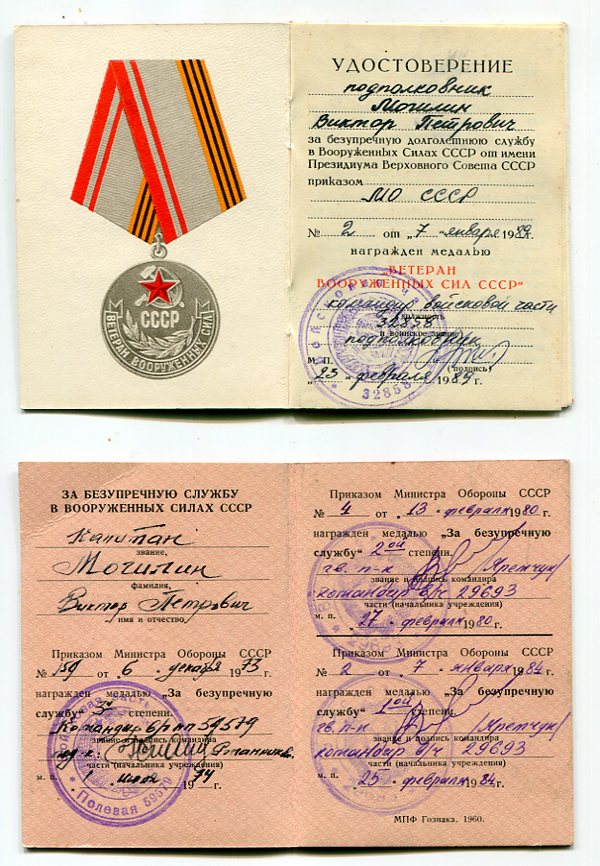 СССР
ВЕТЕРАН ВООРУЖЕННЫХ СИЛ
УДОСТОВЕРЕНИЕ
подполковник
Мочилин
Виктор Петрович
за безупречную долголетнюю службу
в Вооруженных Силах СССР от имени
Президиума Верховного Совета СССР
приказом
МО СССР
№ 2 от „7 января 1989г.
награжден медалью
„ВЕТЕРАН
ВООРУЖЕННЫХ СИЛ СССР"
командир войсковой части
(должность
32858
и воинское звание)
подполковник
М. П. (подпись)
„25 февраля 1989 г.
32858
ЗА БЕЗУПРЕЧНУЮ СЛУЖБУ
В ВООРУЖЕННЫХ СИЛАХ СССР
Капитан
звание,
Мочилин
фамилия,
Виктор Петрович
имя и отчество
Приказом Министра Обороны СССР
№ 159 от 6 декабря 1973 г.
награжден медалью „За безупречную
службу" степени.
Командир
звание и подпись командира
части (начальника учреждения)
м. п. 1 1974 г.
Полевая 59579
Приказом Министра Обороны СССР
№ 4 от 13 февраля 1980 г.
награжден медалью „За безупречную
службу" 2ой степени.
гв. п-к /Яремчук/
звание и подпись командира
командир в/ч 29693
части (начальника учреждения)
м. п. 27 февраля 1980 г.
Приказом Министра Обороны СССР
№ 2 от 7 января 1984 г.
награжден медалью „За безупречную
службу" 1ой степени.
гв. п-к /Яремчук/
звание и подпись командира
командир в/ч 29693
части (начальника учреждения)
м. п. 25 февраля 1984 г.
МПФ Гознака. 1960.